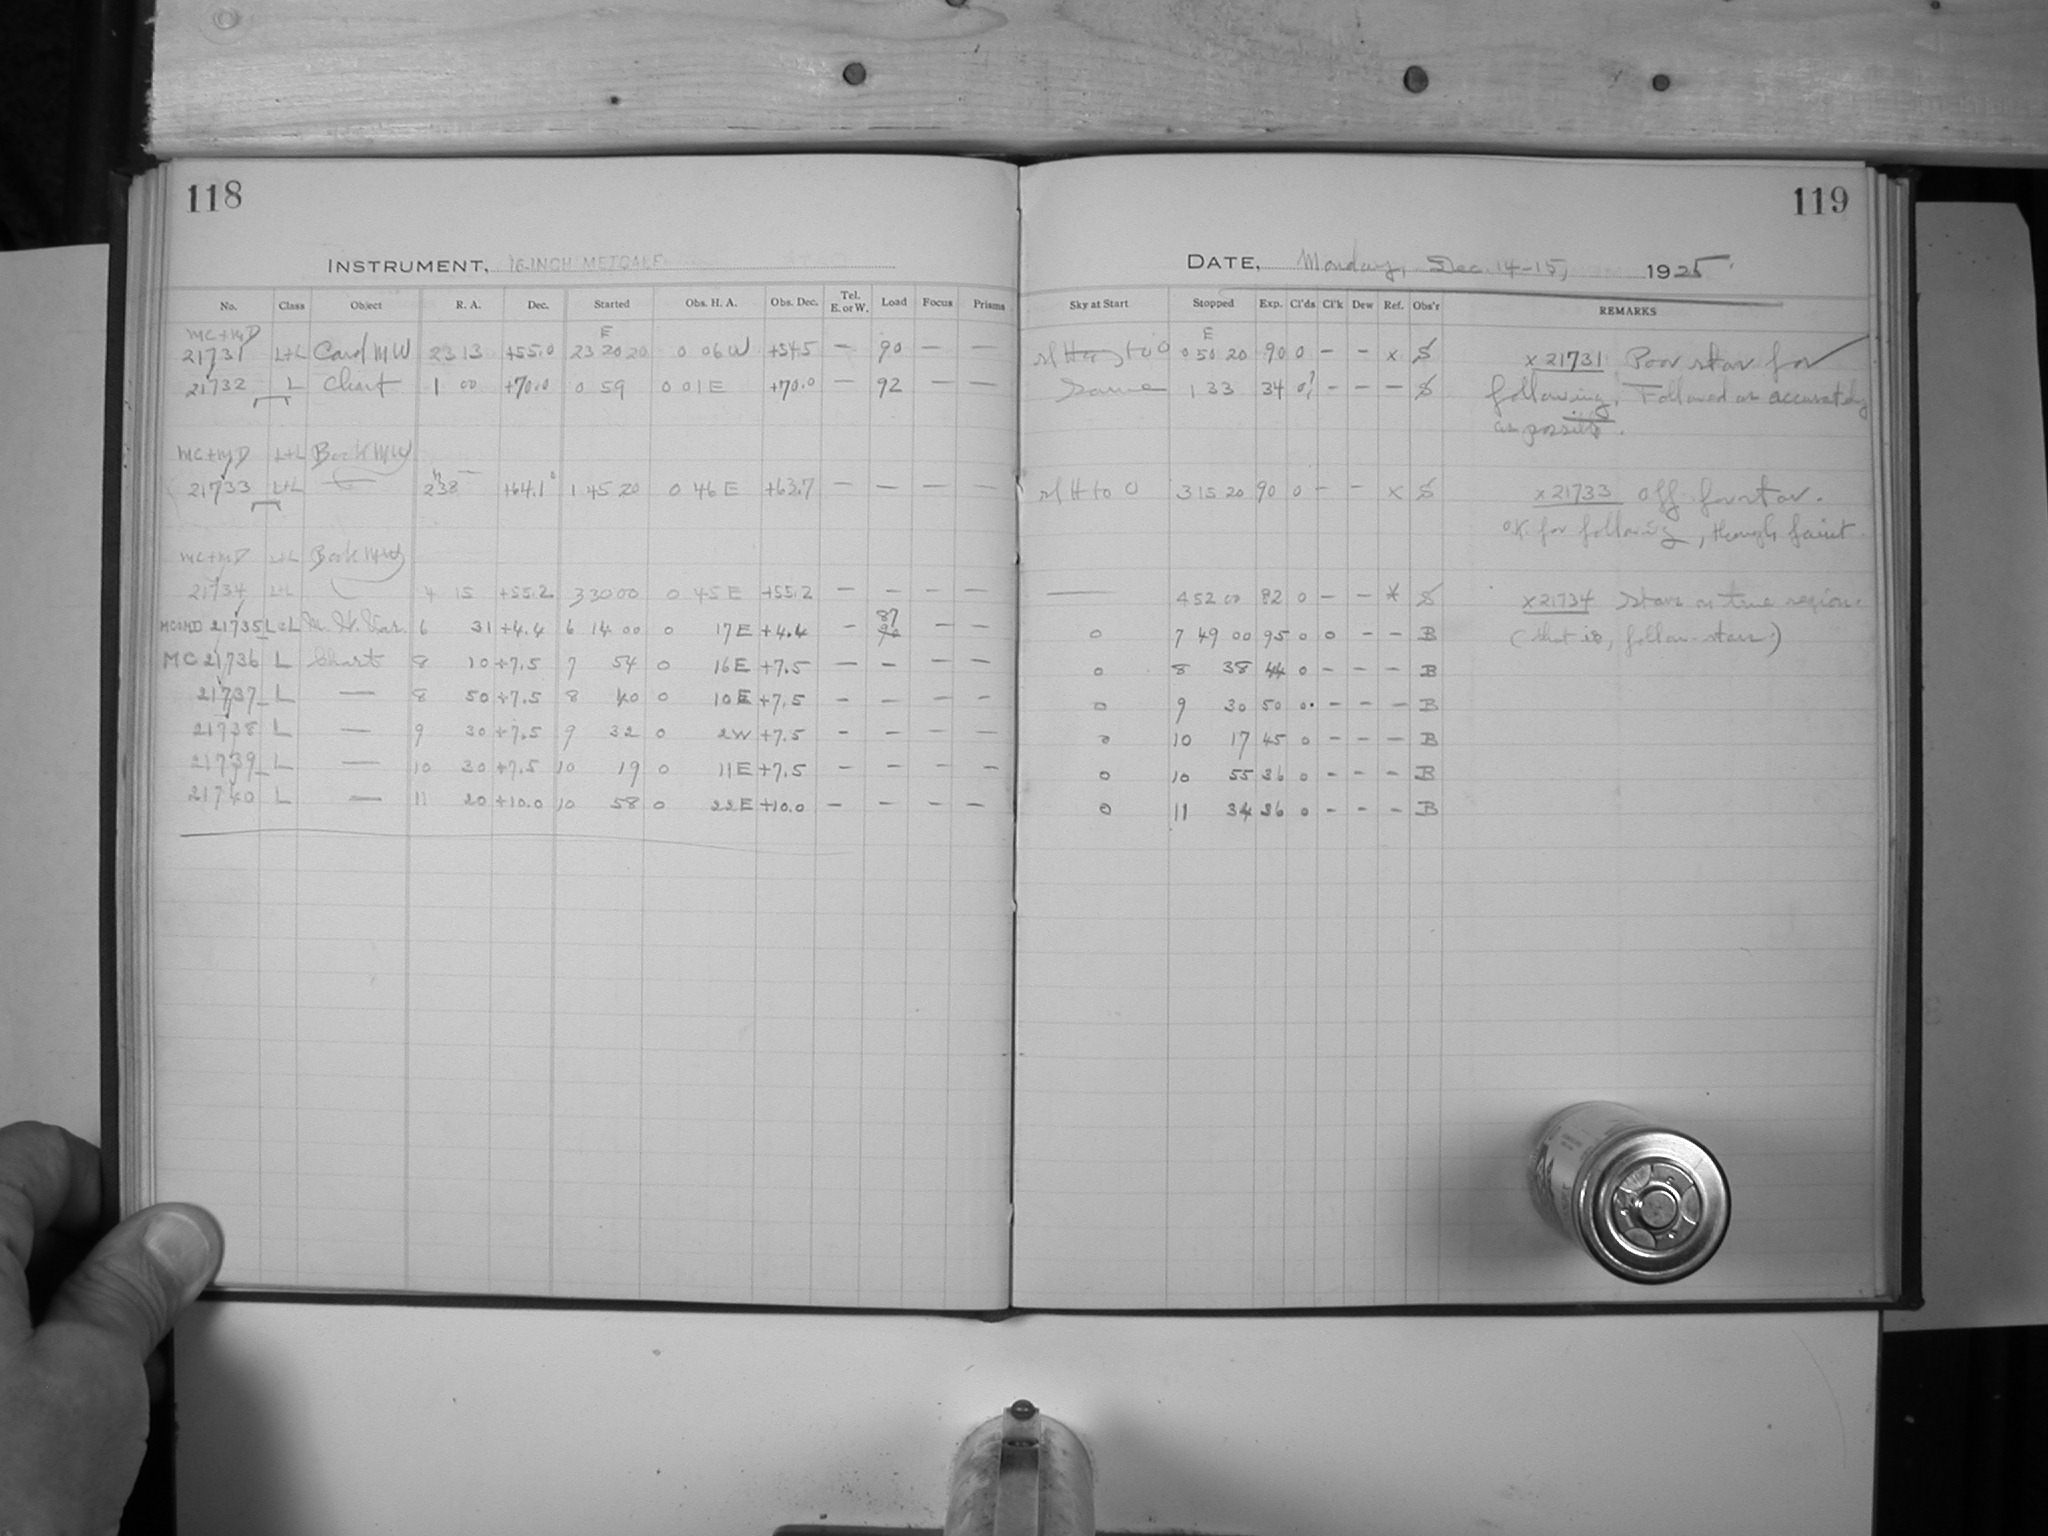 118
INSTRUMENT, 16-INCH METCALF
No. Class Object R. A. Dec. Started Obs. H. A. Obs. Dec. Tel. E. or W. Load Focus Prisms
MC+MD E
21731 L+L Card MW 23 13 +55.0 23 20 20 0 06 W +54.5 — 90 — —
21732 L Chart 1 00 +70.0 0 59 0 01 E +70.0 — 92 — —
MC+MD L+L Book MW
21733 L+L 2h 38 +64.1° 1 45 20 0 46 E +63.7 — — — —
MC+MD L+L Book MW
21734 L+L 4 15 +55.2 3 30 00 0 45 E +55.2 — — — —
MC+MD 21735 L+L 6 31 +4.4 6 14 00 0 17 E +4.4 — 87 — —
MC 21736 L Chart 8 10 +7.5 7 54 0 16 E +7.5 — — — —
21737 L — 8 50 +7.5 8 40 0 10 E +7.5 — — — —
21738 L — 9 30 +7.5 9 32 0 2 W +7.5 — — — —
21739 L — 10 30 +7.5 10 19 0 11 E +7.5 — — — —
21740 L — 11 20 +10.0 10 58 0 22 E +10.0 — — — —
119
DATE, Monday, Dec. 14-15, 1925
Sky at Start Stopped Exp. Cl'ds Cl'k Dew Ref. Obs'r REMARKS
E
to 0 0 50 20 90 0 — — x S x 21731 Poor star for
Same 1 33 34 0? — — — S following. Followed as accurately
as possible.
sl H to 0 3 15 20 90 0 — — x S x 21733 Off
OK. for following, though faint.
— 4 52 00 82 0 — — x S x 21734 Stars on true region.
0 7 49 00 95 0 0 — — B (that is, follow-stars.)
0 8 38 44 0 — — — B
0 9 30 50 0 — — — B
0 10 17 45 0 — — — B
0 10 55 36 0 — — — B
0 11 34 36 0 — — — B